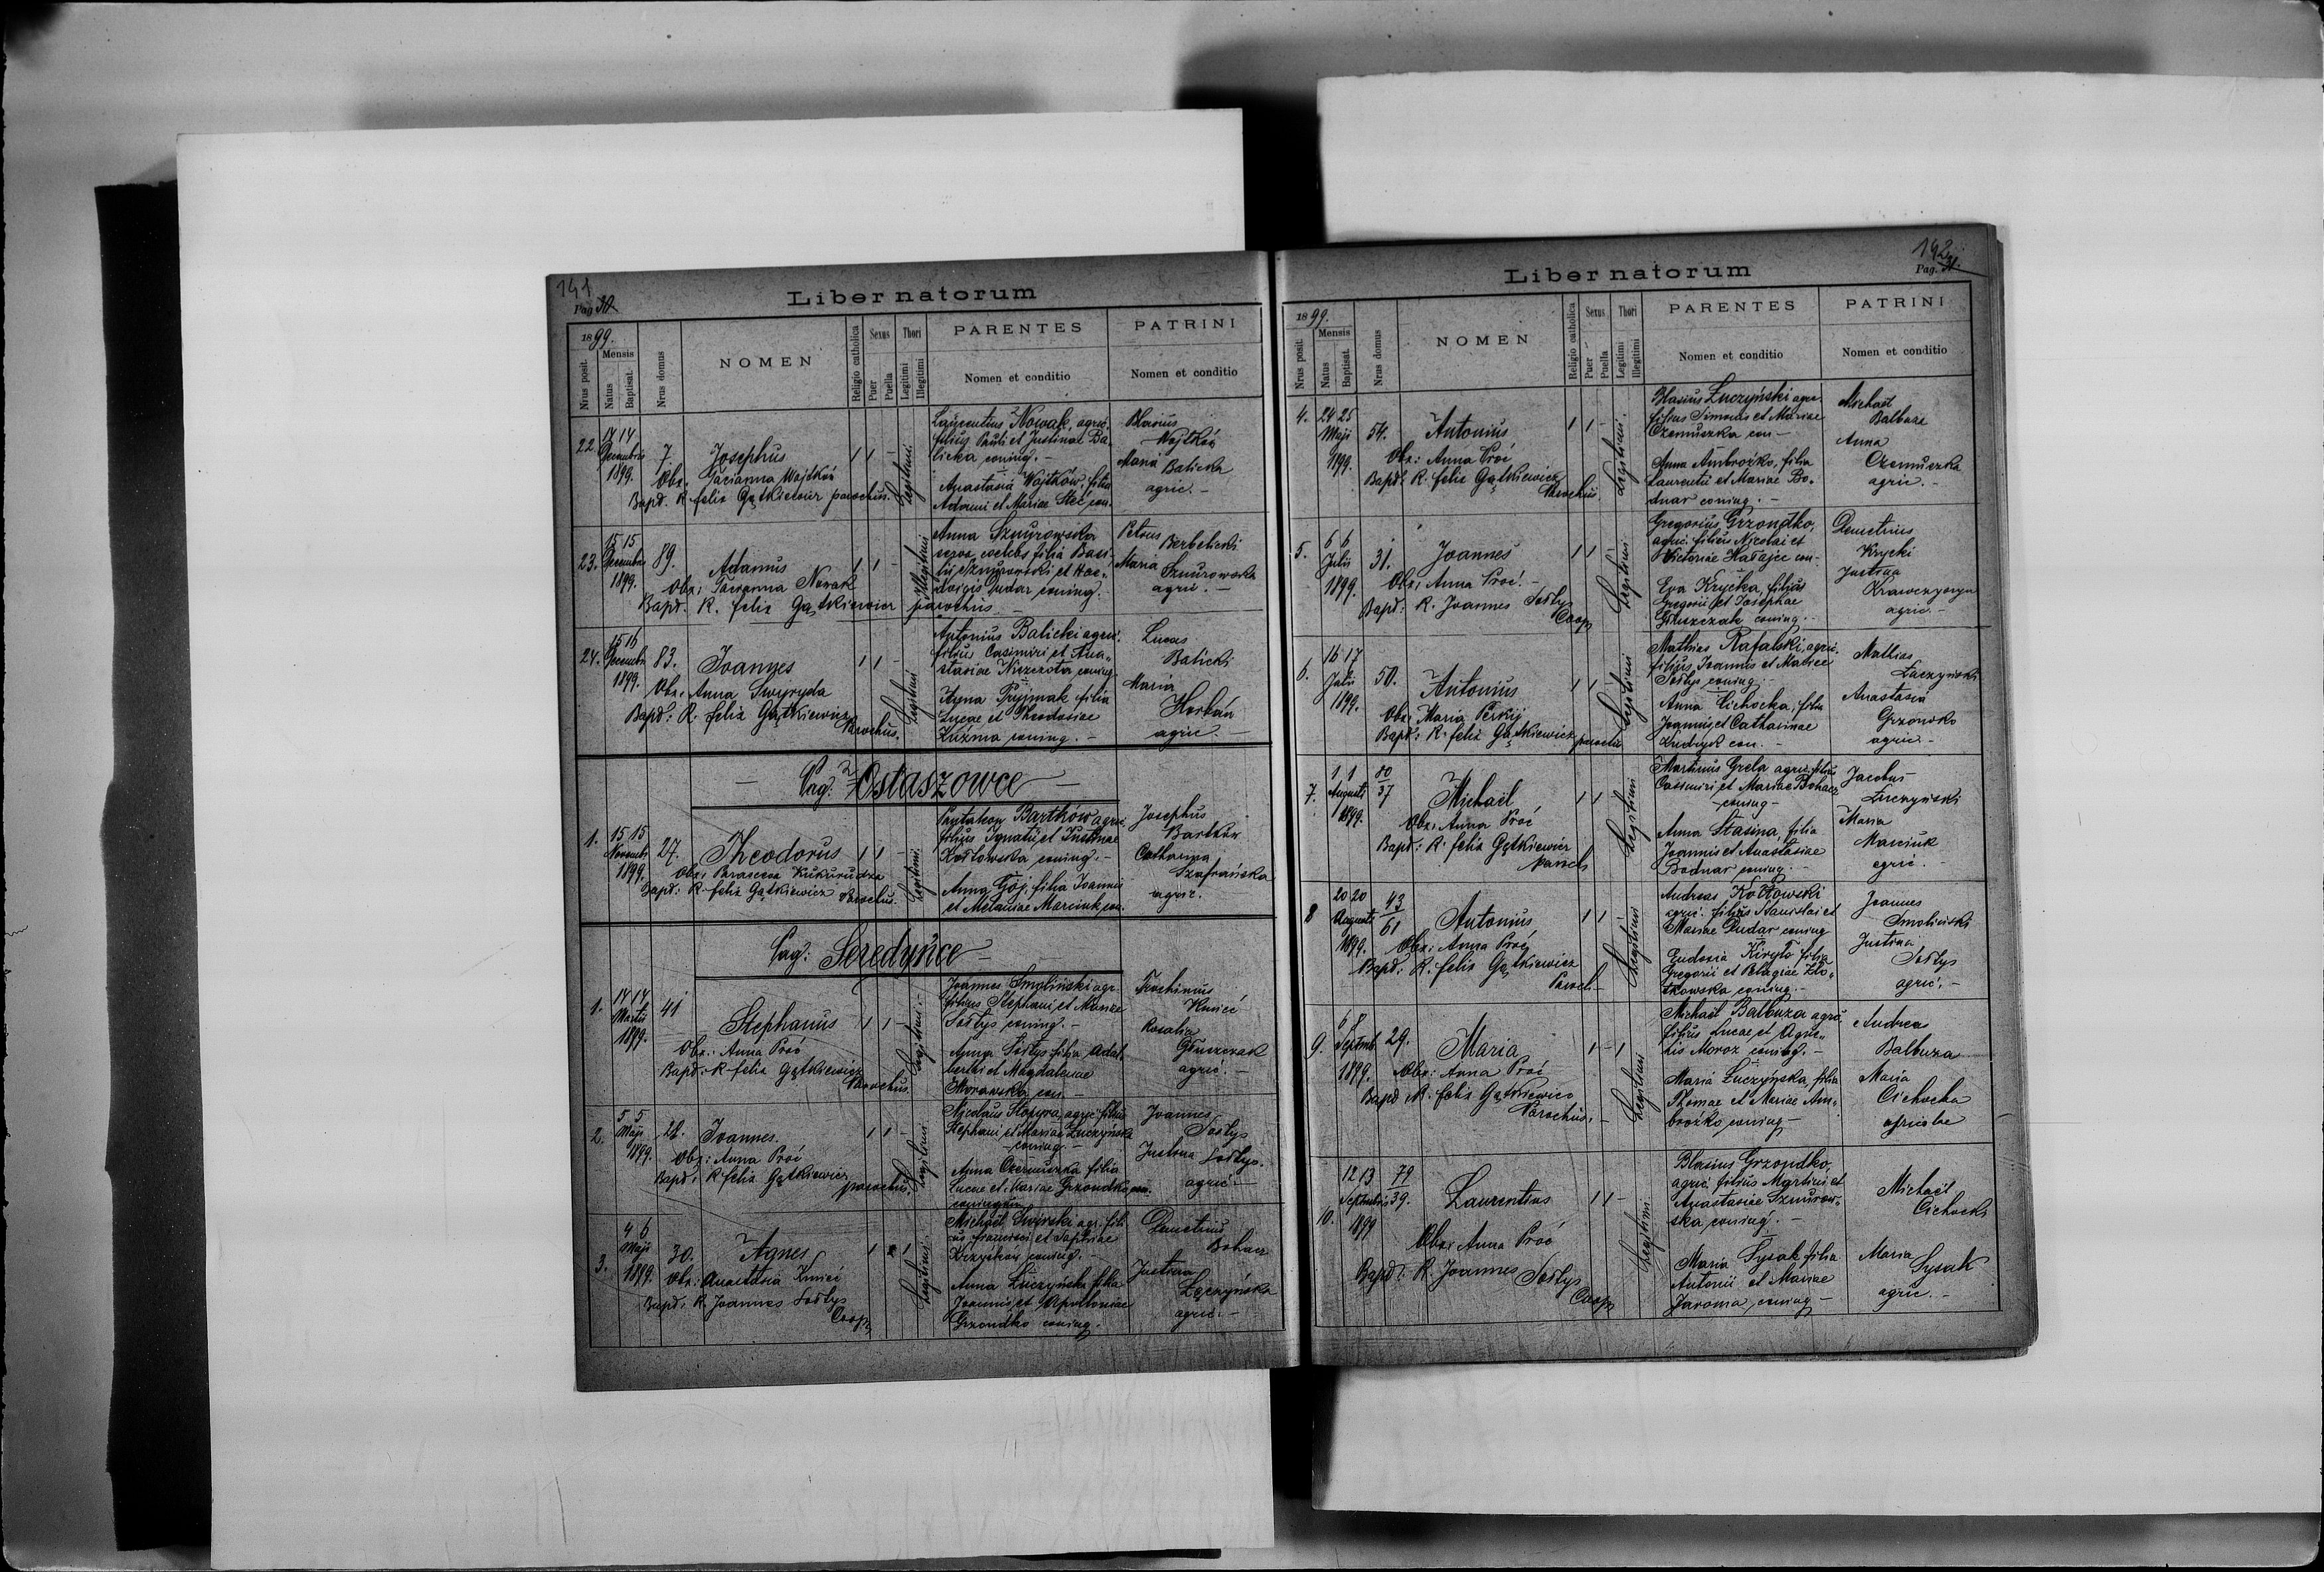 141
Pag. 30
Liber natorum
1899.
Nrus posit.
Mensis
Natus
Baptisat.
Nrus domus
NOMEN
Religio catholica
Sexus
Puer
Puella
Thori
Legitimi
Illegitimi
PARENTES
Nomen et conditio
PATRINI
Nomen et conditio
22
14 14
Decembris
1899.
7
Josephus
Obx. Tacianna Wojtków
Bapt. R. felix Gątkiewicz parochus.
1 1 -
Legitimi
Laurentius Nowak, agric.
filius Pauli et Justinae Ba-
licka coniug. -
Anastasia Wojtków, filia
Adami et Mariae Steć con.
Blasius
Wojtków
Maria Balicka
agric. -
23.
15 15
Decembris
1899.
89.
Adamus
Obx: Tacianna Nowak
Bapt. R. felix Gątkiewicz parochus -
1 1 -
Illegitimi
Anna Sznurowska
serva, coelebs filia Basi-
lii Sznurowski et Hed-
wigis Dudar coniug. -
Petrus
Berbelicki
Maria Sznurowska
agric. -
24.
15 16
Decembr
1899.
83.
Joannes
Obx. Anna Swyryda
Bapt: R. felix Gątkiewicz
Parochus.
1 1 -
Legitimi
Antonius Balicki agric.
filius Casimiri et Ana-
stasiae coniug.
Anna Pryjmak filia
Lucae et Theodosiae
Kuźma coniug. -
Lucas
Balicki
Maria
Horbań
agric -
- Pag. Ostaszowce -
1.
15 15
Novembr
1899.
27.
Theodorus
Obx: Parascea Kukurudza
Bapt: R. felix Gątkiewicz Parochus.
1 1 -
Legitimi.
Pantaleon Bartków agric.
filius Ignatii et Justinae
Kozłowska coniug. -
Anna Gój, filia Joannis
et Melaniae Marciuk con.
Josephus
Bartków
Catharina
Szafrańska
agric.
Pag: Seredyńce -
1.
14 14
Martii
1899.
41
Stephanus
Obx.: Anna Proć
Bapt: R. felix Gątkiewicz
Parochus.
1 1 -
Legitimi.
Joannes Smoliński agr.
filius Stephani et Mariae
Sołtys coniug. -
Anna Sołtys filia Adal-
berthi et Magdalenae
Morawska con. -
Trochimus
Kmieć
Rosalia
Głuszczak
agric. -
2.
5 5
Maji
1899.
Joannes.
Obx: Anna Proć
Bapt: R. felix Gątkiewicz
parochus.
1 1 -
Legitimi
Nicolaus Stopyra, agric. filius
Stephani et Mariae Łuczyńska
coniug -
Anna Czemuszka filia
Lucae et Mariae Grzondko con.
coniugum
Joannes
Sołtys
Justina Sołtys.
agric -
3.
4 6
Maji
1899.
30.
Agnes
Obx: Anastasia Kmieć
Bapt: R. Joannes Sołtys
Coop.
Legitimi.
Michaël Swirski agr. fili-
us francisci et Sophiae
Krzyśków coniug. -
Anna Łuczyńska filia
Joannis et Apolloniae
Grzondko coniug.
Demetrius
Bohacz
Justina
Łęczyńska
agric. -
142
Pag. 31.
Liber natorum
1899.
Nrus posit.
Mensis
Natus
Baptisat.
Nrus domus
NOMEN
Religio catholica
Sexus
Puer
Puella
Thori
Legitimi
Illegitimi
PARENTES
Nomen et conditio
PATRINI
Nomen et conditio
4.
24 25
Maji
1899.
54.
Antonius
Obx: Anna Proć
Bapt: R. felix Gątkiewicz
Parochus.
1 1 -
Legitimi.
Blasius Łuczyński agr.
filius Simonis et Mariae
Czemuszka con -
Anna Ambrożko, filia
Laurentii et Mariae Bo-
dnar coniug. -
Michael
Balbuza
Anna
Czemuszka
agric. -
5.
6 6
Julii
1899.
31.
Joannes
Obx: Anna Proć. -
Bapt: R. Joannes Sołtys
Coop
1 1
Legitimi
Gregorius Grzondko,
agric. filius Nicolai et
Victoriae Hałajce con -
Eva Kryćka, filius
Gregorii et Josephae
Głuszczak coniug. -
Demetrius
Krycki
Justina
Krawczyszyn
agric. -
6.
16 17
Julii
1899.
50.
Antonius
Obx: Maria Perkij
Bapt: R. felix Gątkiewicz parochus
1 1
Legitimi
Mathias Rafalski, agric.
filius Joannis et Mariae
Sołtys coniug. -
Anna Cichocka, filia
Joannis et Catharinae
con. -
Mathias
Łuczyński
Anastasia
Grzondko
agric. -
7.
1 1
Augusti
1899.
80
37
Michaël
Obx: Anna Proć
Bapt: R. felix Gątkiewicz
paroch
1 1
Legitimi
Martinus Grela agric. filius
Casimiri et Mariae Bohacz
coniug -
Anna Stasina, filia
Joannis et Anastasiae
Bodnar coniug. -
Jacobus
Łuczyński
Maria
Marciuk
agric. -
8
20 20
Augusti
1899.
43
61
Antonius
Obx: Anna Proć
Bapt: R. felix Gątkiewicz
Paroch -
1 1
Legitimi
Andreas Kozłowski
agric. filius Stanislai et
Mariae Dudar coniug
Eudoxia Kiryło filia
Gregorii et Pelagiae Zło-
tkowska coniug. -
Joannes
Smoliński
Justina
Sołtys
agric. -
9.
6 8
Septemb.
1899.
29.
Maria
Obx: Anna Proć
Bapt R. felix Gątkiewicz
Parochus. -
1 - 1
Legitimi
Michaël Balbuza agric.
filius Lucae et Agne-
tis Moroz coniug. -
Maria Łuczyńska, filia
Thomae et Mariae Am-
brożko, coniug -
Andreas
Balbuza
Maria
Cichocka
agricolae
10.
12 13
Septembris
1899
79
39.
Laurentius
Obx: Anna Proć
Bapt: R. Joannes Sołtys
Coop.
1 1 -
Legitimi
Blasius Grzondko,
agric. filius Martini et
Anastasiae Sznurow-
ska coniug. -
Maria Sysak filia
Antonii et Mariae
Jaroma, coniug -
Michaël
Cichocki
Maria
Sysak
agric. -